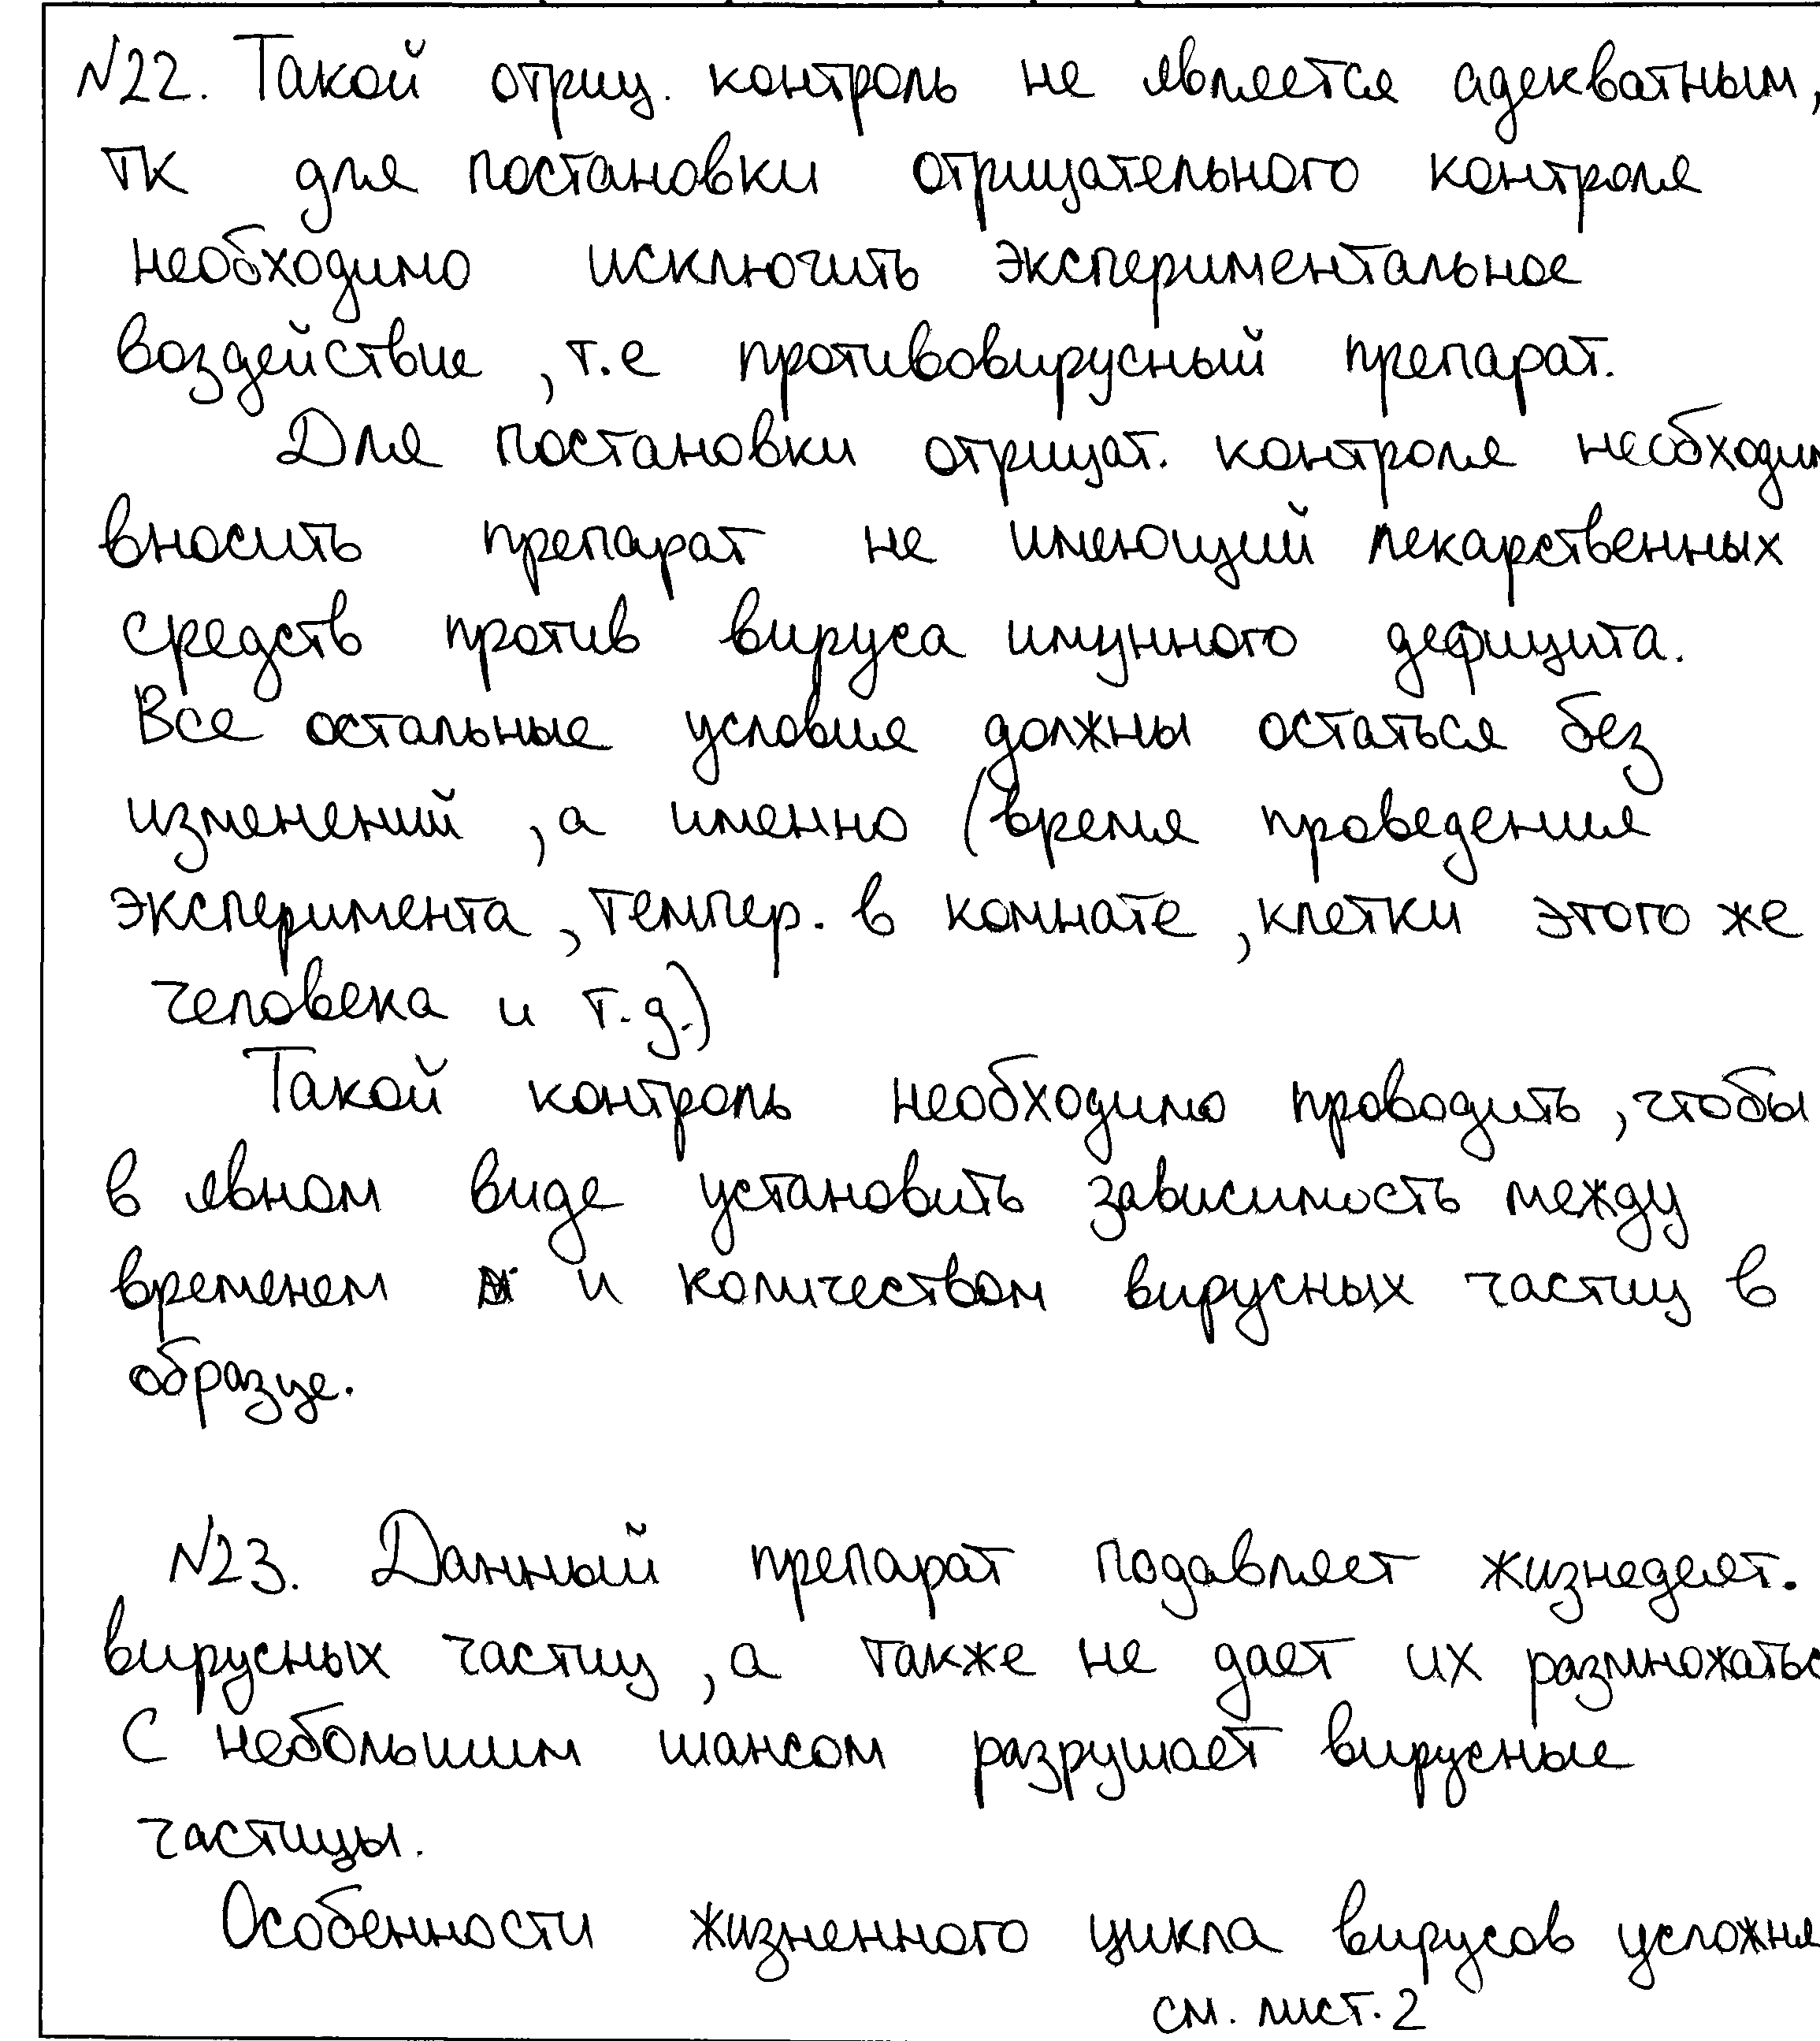 №22. Такой отриц. контроль не является адекватным,
тк для постановки отрицательного контроля
необходимо исключить экспериментальное
воздействие, т.е противовирусный препарат.
Для постановки отрицат. контроля необходим
вносить препарат не имеющий лекарственных
средств против вируса имунного дефицита.
Все остальные условия должны остаться без
изменений, а именно (время проведения
эксперимента, темпер. в комнате, клетки этого же
человека и т.д.)
Такой контроль необходимо проводить, чтобы
в явном виде установить зависимость между
временем и количеством вирусных частиц в
образце.
№23. Данный препарат подавляет жизнедеят.
вирусных частиц, а также не дает их размножатьс
С небольшим шансом разрушает вирусные
частицы.
Особенности жизненного цикла вирусов усложня
см. лист. 2